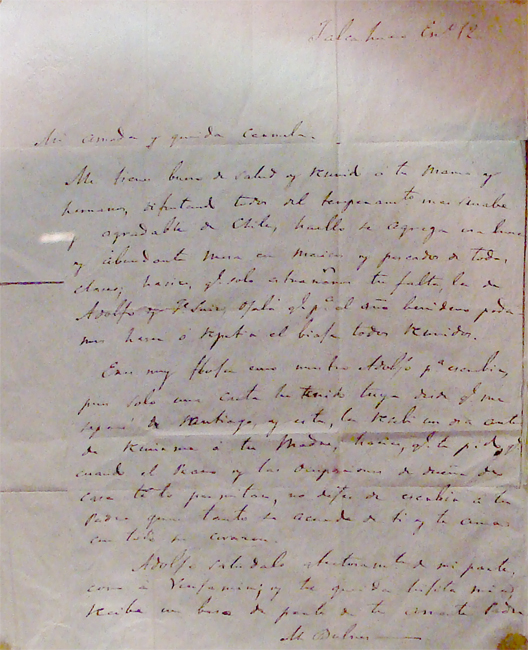 Talcahuano En.º 12
Mi amada y querida Carmela.
Me tienes bueno de salud y reunido á tu Mama y
hermanos, disfrutando todos del temperamto mas suave
y agradable de Chile, á ello se agrega una buena
y abundante mesa en marisco y pescados de todas
clases,
Adolfo y Luis, Ojalá qe pª el año benidero podamos
á repetir el biaje todos reunidos.
Eres muy floja como nuestro Adolfo pª escribir,
pues solo una carta he tenido tuya desde qe me
separé de Santiago, y esta, la recibi un dia antes
de reunirme á tu Madre,
cuando el Piano y las Ocupaciones de dueña de
casa te lo permitan, no dejes de escribir á tu
Padre quien tanto se acuerda de ti y te ama
con todo su corazon.
Adolfo saludalo afectuosamte de mi parte,
como á Benjamin; y tu querida hijita mia,
recibe un beso de parte de tu amante Padre
M. Bulnes